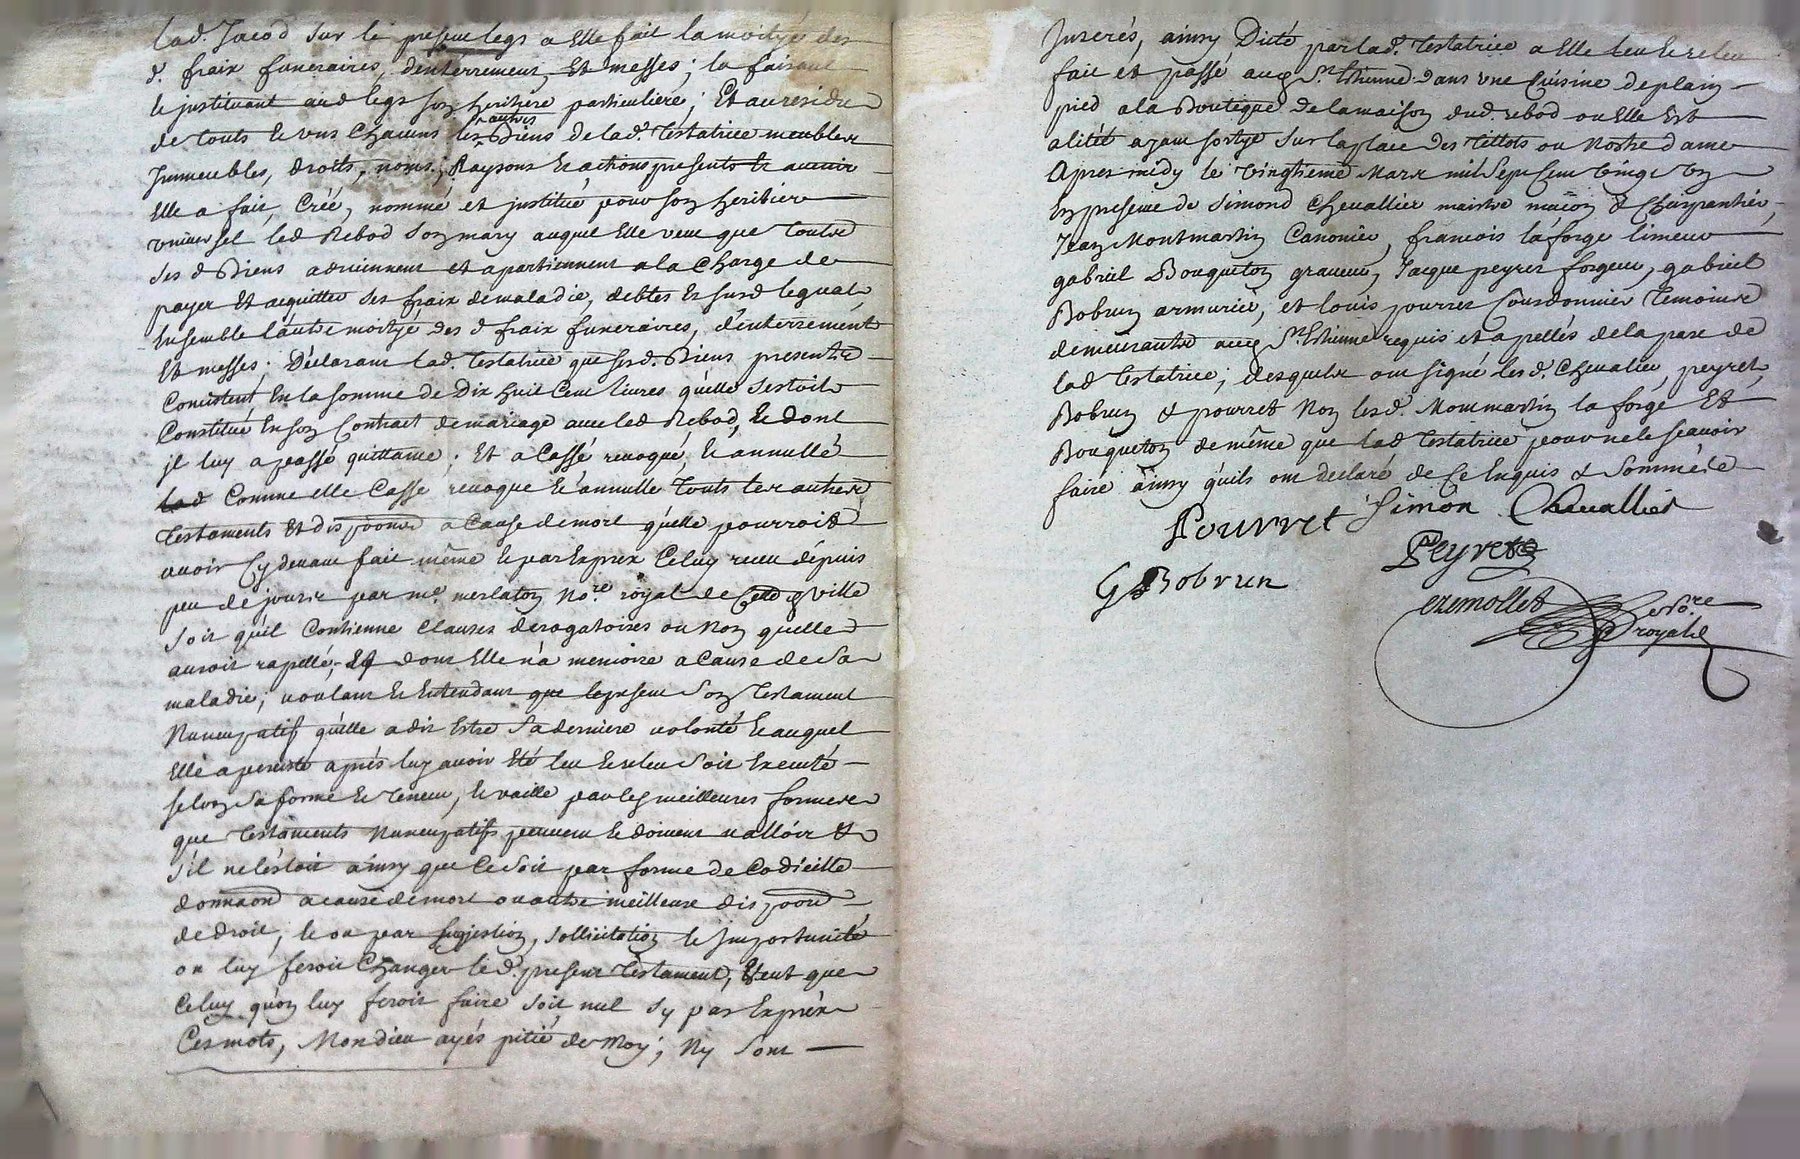 lad. Jacod sur le present legs a Elle fait la moityé des
d. fraix funeraires, d'enterrement, Et messes; la faisant
le justituant aud legs son heritiere particuliere; Et au residu
de touts le uns chacuns les autres Biens de lad. Testatrice meubles
Jmmeubles, droits, noms, Raysons Et actions presents Et avenir
Elle a fait, Créé, nommé et justitué pour son heritier
universel led Rebod son mary auquel Elle veut que toutes
ses d Biens adviennent et apartiennent a la Charge de
payer Et acquitter ses fraix de maladie, debtes Et susd legual,
Ensemble l'autre moityé des d fraix funeraires, d'enterrement
Et messes. Déclarant lad. Testatrice que sesd. Biens presents
Consistent En la somme de Dix huit Cent livres qu'elle s'estoit
Constitué En son Contract de mariage avec led Rebod, Et dont
jl luy a passé quittance; Et a Cassé revoqué, Et annullé
Comme elle Casse revoque Et annulle touts les autres
Testaments Et dispoons a Cause de mort qu'elle pourroit
avoir Cy devant fait même Et par Exprex Celuy receu dépuis
peu de jours par me. merlaton No.re royal de Cette ville
soit qu'il Contienne Clauses derogatoires ou Non quelle
auroit rapellé, dont Elle n'a memoire a Cause de sa
maladie; voulant Et Entendant que le present son Testament
Nuncupatif qu'elle a dit Estre sa derniere volonté Et auquel
Elle a persisté aprés luy avoir Eté leu Et releu soit Executé
selon sa forme Et Teneur, Et vaille par les meilleures formes
que Testaments Nuncupatifs peuvent Et doivent valloir Et
s'il ne l'estoit ainsy que Ce soit par forme de Codicille
donnaon a cause de mort ou autre meilleure dispoon
de droit, Et ou par sugjestion, sollicitation Et Jmportunité
on luy feroit Changer led. present Testament, Veut que
Celuy qu'on luy feroit faire soit nul sy par Exprés
Ces mots, Mon dieu ayés pitié de Moy; Ny sont
Jnserés, ainsy Dicté par lad. Testatrice a Elle leu Et releu
fait et passé aud St. Etienne dans une Cuisine de plain
pied a la Boutique de la maison dud. rebod ou Elle Est
alitét ayant sortye sur la place des Tillots ou Nostre dame
Apres midy le vingtieme Mars mil Sept Cent vingt un
En presence de Simond Chevallier maistre maçon & Charpantier,
Jean Montmartin Canonier, francois la forge limeur
gabriel Bouqueton graveur, Jacque peyret forgeur, gabriel
Bobrun armurier, et louis pourret Courdonnier Temoins
demeurants aud St. Etienne requis et apellés de la part de
lad Testatrice; desquels ont signé lesd. Chevalier, peyret,
Bobrun & pourret Non lesd. Montmartin la forge Et
Bouqueton de même que lad Testatrice pour ne le sçavoir
faire ainsy qu'ils ont declaré de Ce Enquis & Sommés
Pourret Simon Chevallier
Peyret
G Bobrun
No.re
royal